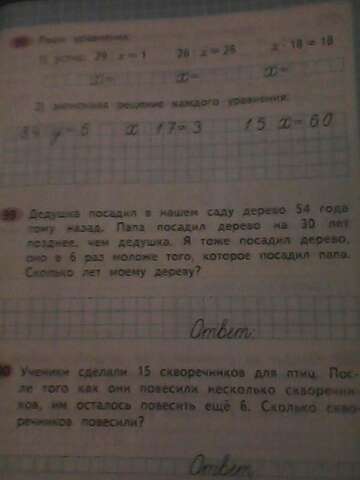 Реши уравнения:
1) устно: 29 x = 1 26 x = 26 x · 18 = 18
x = x = x =
2) записывая решение каждого уравнения:
84 y = 6 x 17 = 3 15 x = 60
99 Дедушка посадил в нашем саду дерево 54 года
тому назад. Папа посадил дерево на 30 лет
позднее, чем дедушка. Я тоже посадил дерево,
оно в 6 раз моложе того, которое посадил папа.
Сколько лет моему дереву?
Ответ:
Ученики сделали 15 скворечников для птиц. Пос-
ле того как они повесили несколько скворечни-
ков, им осталось повесить ещё 6. Сколько скво-
речников повесили?
Ответ